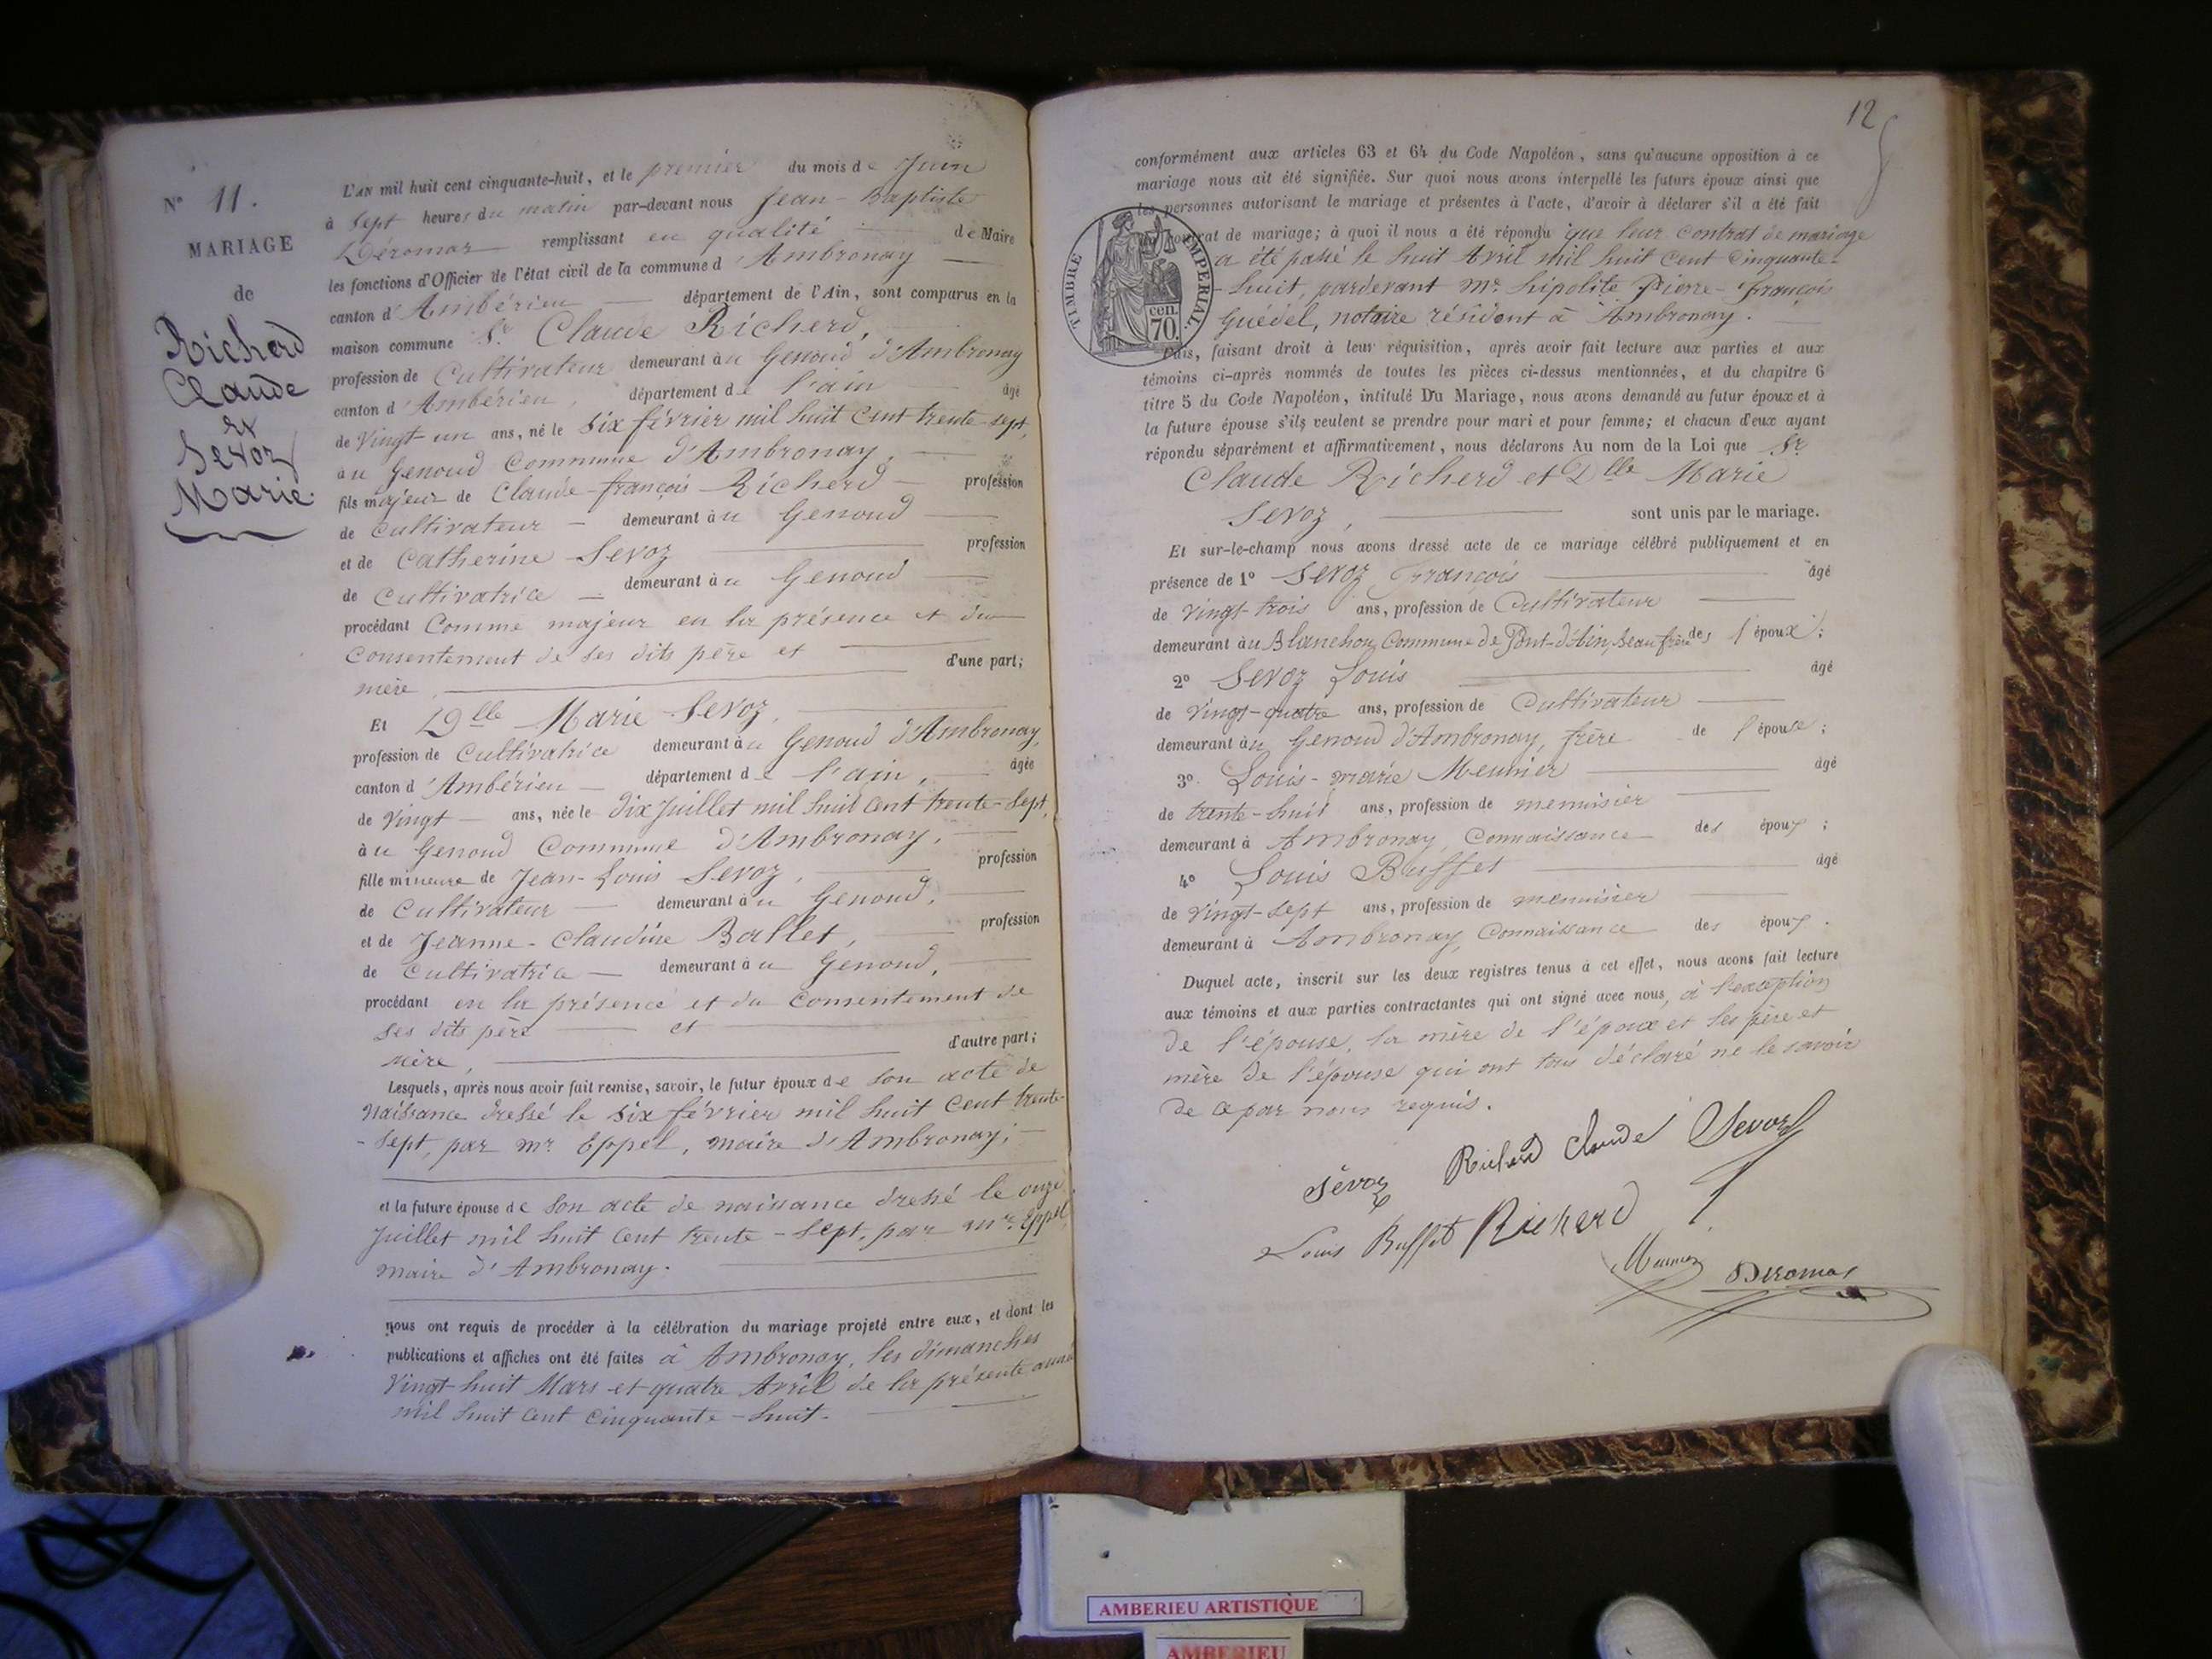 N° 11.
MARIAGE
de
Richerd
Claude
et
Sevoz
Marie
L'AN mil huit cent cinquante-huit, et le premier du mois de Juin
à Sept heures du matin par-devant nous Jean-Baptiste
Déromas remplissant en qualité de Maire
les fonctions d'Officier de l'état civil de la commune d'Ambronay
canton d'Ambérieu département de l'Ain, sont comparus en la
maison commune Sr. Claude Richerd,
profession de Cultivateur demeurant au Genoud d'Ambronay
canton d'Ambérieu, département de l'ain âgé
de Vingt-un ans, né le Six février mil huit cent trente-sept,
au Genoud Commune d'Ambronay,
fils majeur de Claude-françois Richerd profession
de Cultivateur demeurant au Genoud
et de Catherine Sevoz profession
de Cultivatrice demeurant au Genoud
procédant Comme majeur en la présence et du
Consentement de ses dits père et d'une part;
mère,
Et Dlle Marie Sevoz,
profession de Cultivatrice demeurant au Genoud d'Ambronay,
canton d'Ambérieu département de l'ain, âgée
de Vingt ans, née le dix Juillet mil huit cent trente-Sept,
au Genoud Commune d'Ambronay,
fille mineure de Jean-Louis Sevoz, profession
de Cultivateur demeurant au Genoud,
et de Jeanne-Claudine Ballet, profession
de Cultivatrice demeurant au Genoud,
procédant en la présence et du Consentement de
ses dits père et
mère, d'autre part;
Lesquels, après nous avoir fait remise, savoir, le futur époux de son acte de
naissance dressé le six février mil huit cent trente-
-Sept, par mr. Eppel, maire d'Ambronay;
et la future épouse de son acte de naissance dressé le onze
Juillet mil huit cent trente-Sept, par mr. Eppel,
maire d'Ambronay.
nous ont requis de procéder à la célébration du mariage projeté entre eux, et dont les
publications et affiches ont été faites à Ambronay, les dimanches
Vingt-huit Mars et quatre Avril de la présente année
mil huit cent cinquante-huit.
12
conformément aux articles 63 et 64 du Code Napoléon, sans qu'aucune opposition à ce
mariage nous ait été signifiée. Sur quoi nous avons interpellé les futurs époux ainsi que
les personnes autorisant le mariage et présentes à l'acte, d'avoir à déclarer s'il a été fait
contrat de mariage; à quoi il nous a été répondu que leur Contrat de mariage
a été passé le huit Avril mil huit cent Cinquante-
-huit, pardevant mr. hipolite Pierre-François
Guédel, notaire résidant à Ambronay.
TIMBRE IMPERIAL.
70 cen.
Puis, faisant droit à leur réquisition, après avoir fait lecture aux parties et aux
témoins ci-après nommés de toutes les pièces ci-dessus mentionnées, et du chapitre 6
titre 5 du Code Napoléon, intitulé Du Mariage, nous avons demandé au futur époux et à
la future épouse s'ils veulent se prendre pour mari et pour femme; et chacun d'eux ayant
répondu séparément et affirmativement, nous déclarons Au nom de la Loi que Sr.
Claude Richerd et Dlle Marie
Sevoz, sont unis par le mariage.
Et sur-le-champ nous avons dressé acte de ce mariage célébré publiquement et en
présence de 1° Sevoz François âgé
de Vingt-trois ans, profession de Cultivateur
demeurant au Blanchon, Commune de Pont-d'Ain, beau frère de l'époux;
2° Sevoz Louis âgé
de Vingt-quatre ans, profession de Cultivateur
demeurant au Genoud d'Ambronay, frère de l'épouse;
3° Louis-marie Meunier âgé
de trente-huit ans, profession de menuisier
demeurant à Ambronay, Connaissance des époux;
4° Louis Buffet âgé
de Vingt-Sept ans, profession de menuisier
demeurant à Ambronay, Connaissance des époux.
Duquel acte, inscrit sur les deux registres tenus à cet effet, nous avons fait lecture
aux témoins et aux parties contractantes qui ont signé avec nous, à l'exception
de l'épouse, la mère de l'époux et les père et
mère de l'épouse qui ont tous déclaré ne le savoir
de ce par nous requis.
Sévoz Richerd Claude Sevoz
Louis Buffet Richerd
Meunier Deromas
AMBERIEU ARTISTIQUE
AMBERIEU